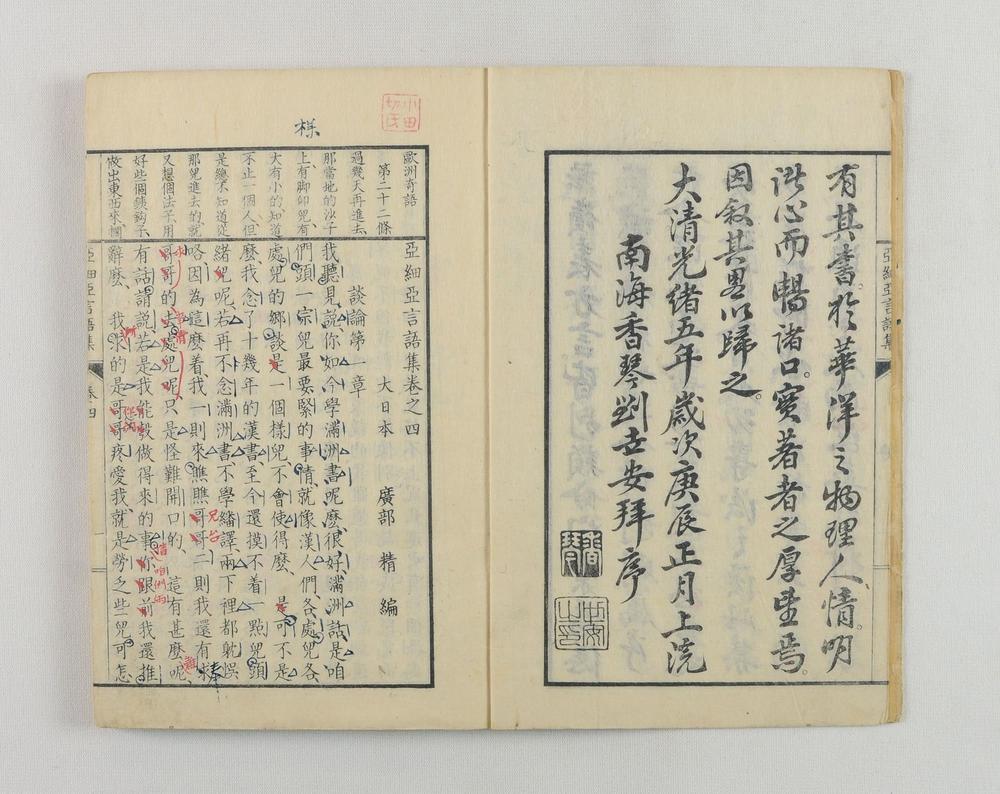 有其書。於華洋之物理人情。明
心而暢諸口。寔著者之厚望焉。
因叙其畧以歸之。
大清光緒五年歲次庚辰正月上浣
南海香琴劉世安拜序
亞細亞言語集
小田
切氏
様
歐洲奇語
第二十二條
過幾天再進去、
那當地的沙子
上、有脚印兒、有
大有小的、知道、
不止一個人、但
是總不知道從
那兒進去的、就
又想個法子、用
好些個鉄鈎子、
放出東西來擱
亞細亞言語集卷之四
大日本 廣部 精 編
談論第一章
我聽見說、你如今學滿洲書呢麽、很好、滿洲話是咱
們頭一宗兒最要緊的事情、就像漢人們、各處兒各
處兒的鄉談是一個樣兒、不會使得麽、 是可不是
麽、我念了十幾年的漢書、至今還摸不着一點兒頭
緒兒呢、若再不念滿洲書、不學繙譯、兩下裡都躭悞
咯、因為這麽着、我一則來瞧瞧哥哥、二則我還有求
哥哥的去處兒呢、只是怪難開口的、 這有甚麽呢、
有話請說、若是我能彀做得來的事、你跟前我還推
辭麽、 我求的是哥哥疼愛我、就是勞乏些兒、可怎
兄台
亞細亞言語集
卷四
一